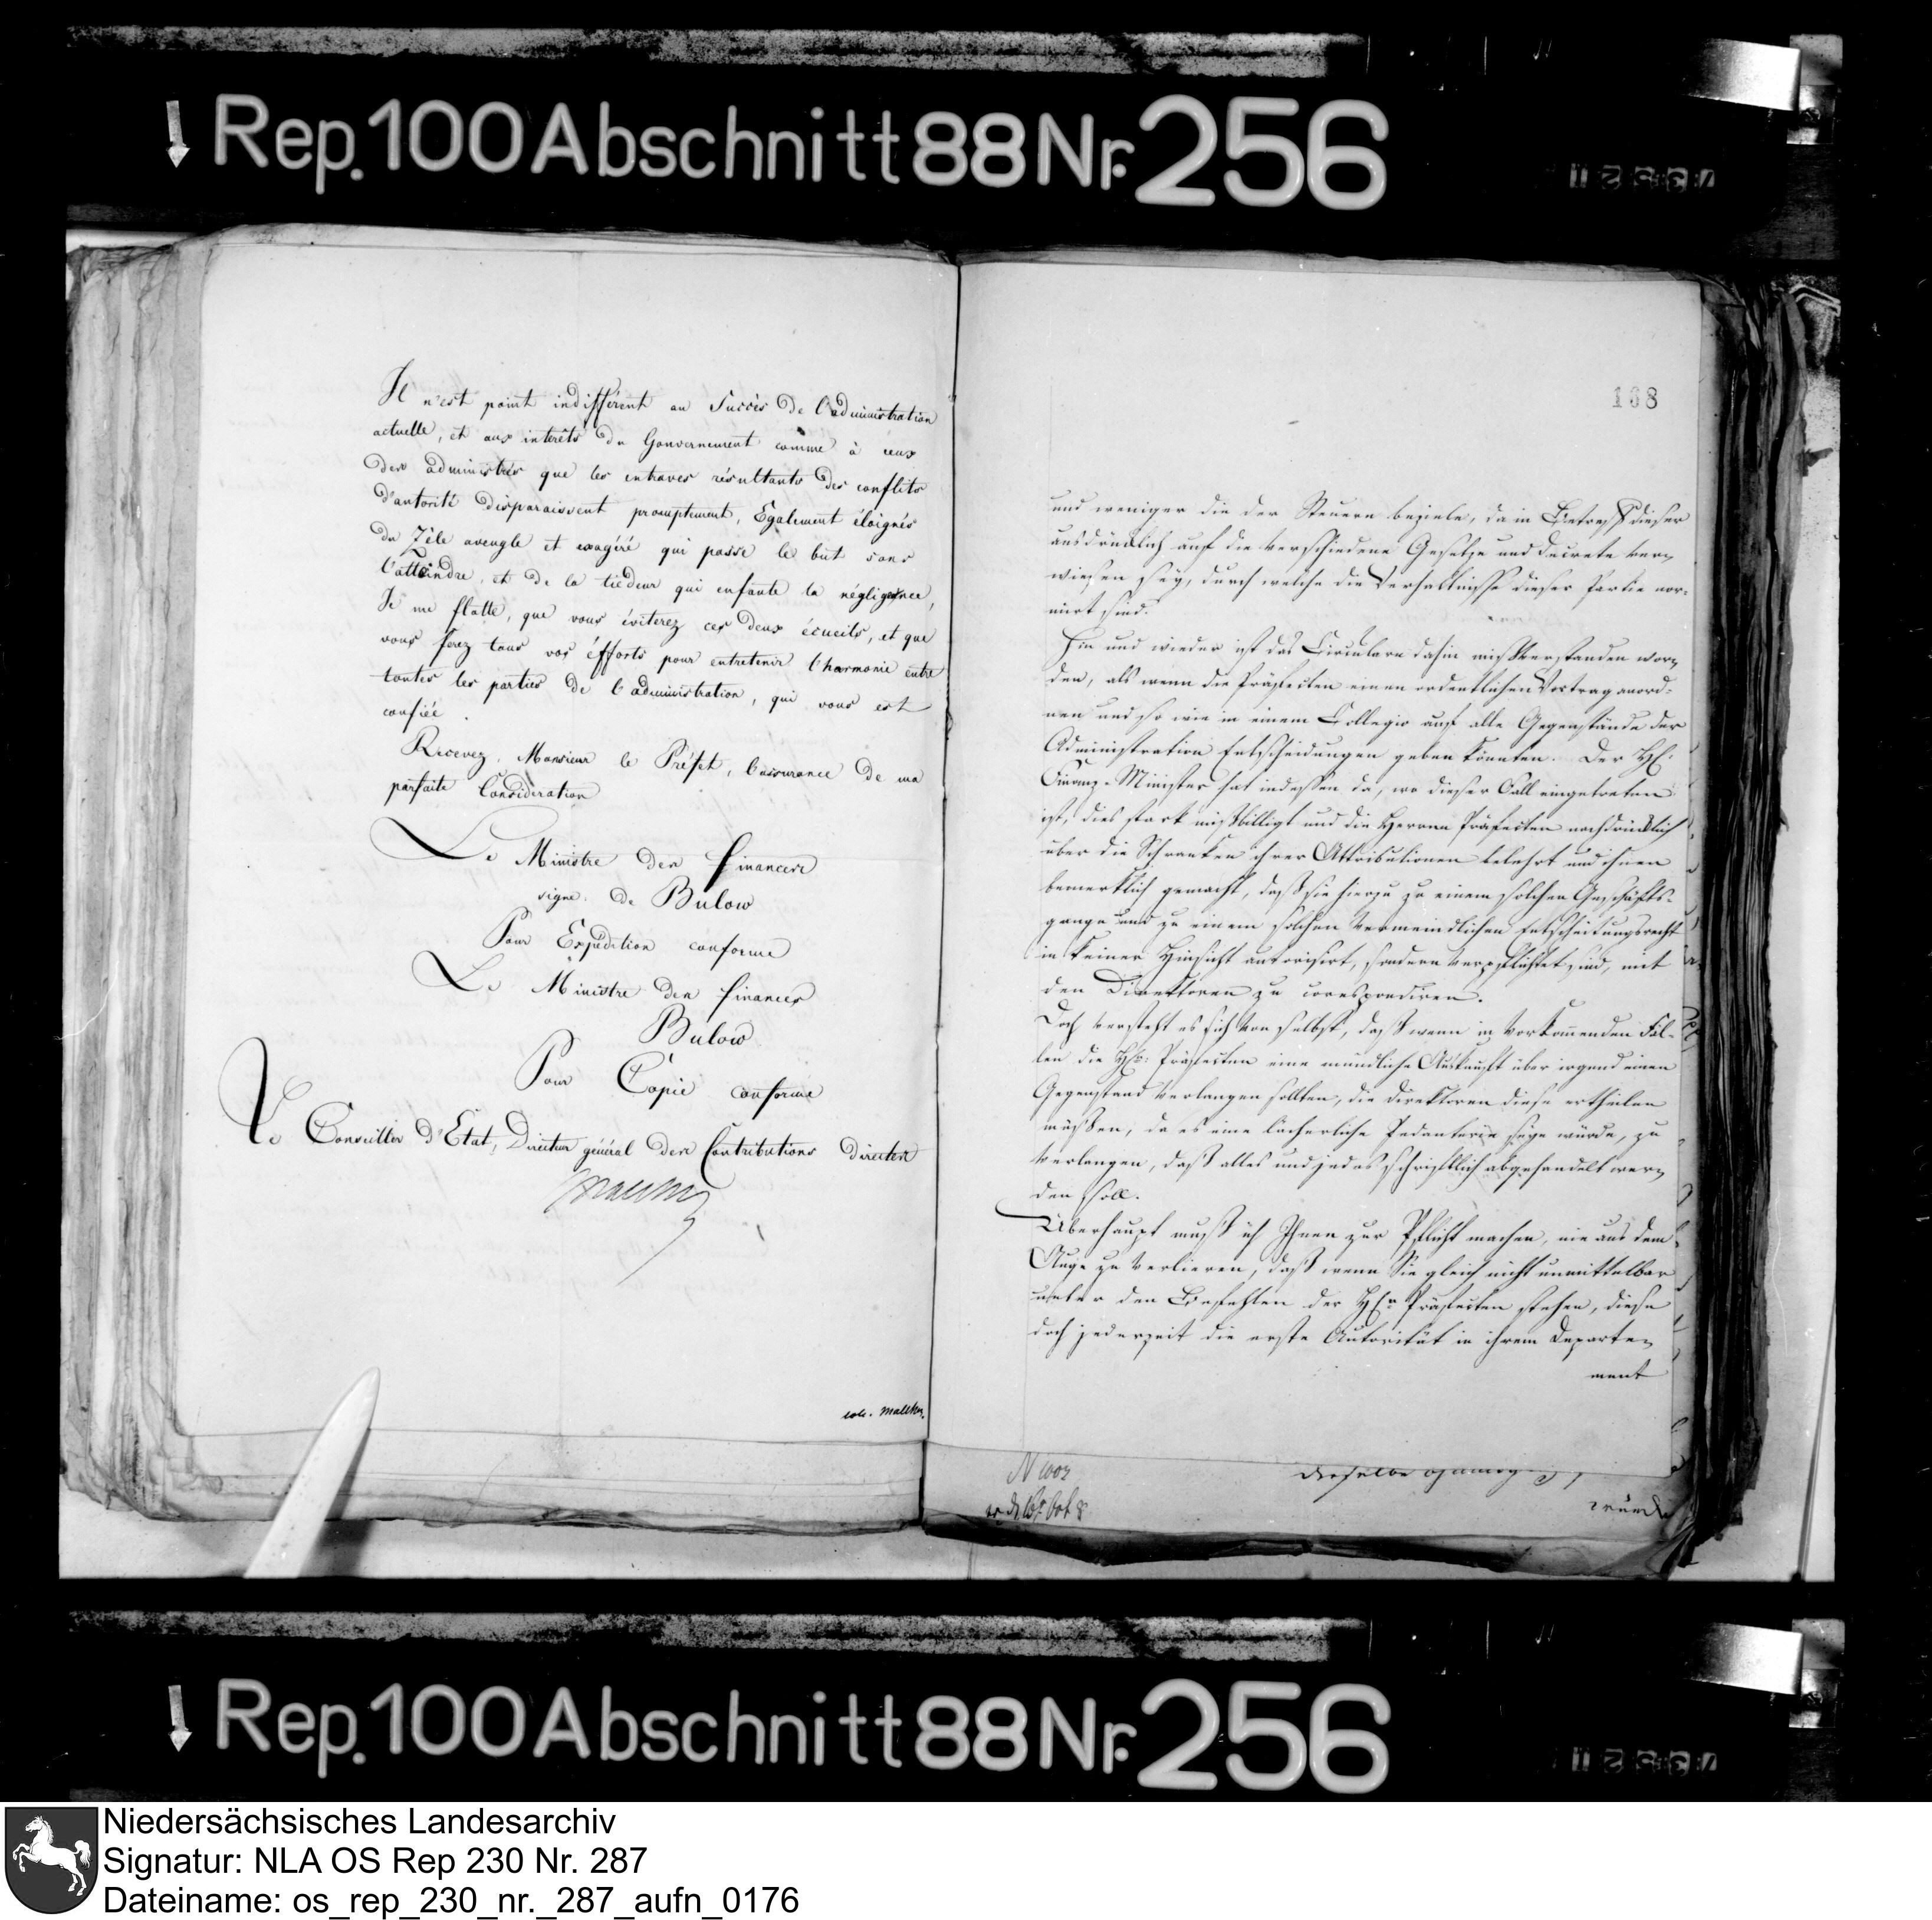 Rep. 100 Abschnitt 88 Nr. 256
Il n'est point indifférent au Succès de l'administration
actuelle, et aux interêts du Gouvernement comme à ceux
des administrés que les entraves résultants des conflits
d'autorité disparaissent promptement, Egalement éloignés
du Zèle aveugle et exagéré qui passe le but sans
l'atteindre, et de la tiédeur qui enfante la négligence,
Je me flatte, que vous éviterez ces deux écueils, et que
vous ferez tous vos éfforts pour entretenir l'harmonie entre
toutes les parties de l'administration, qui vous est
confiée.
Recevez, Monsieur le Préfet, l'assurance de ma
parfaite Considération
Le Ministre des finances
signé. de Bulow
Pour Expédition conforme
Le Ministre des finances
Bulow
Pour Copie conforme
Le Conseiller d'Etat, Directeur général des Contributions directes
Malchus
Malchus.
108
und weniger die der Steuern beziele, da in Betreff dieser
ausdrücklich auf die verschiedene Gesetze und Decrete ver=
wiesen sey, durch welche die Verhältnisse dieser Partie nor=
mirt sind.
Hin und wieder ist das Circulare dahin mißverstanden wor=
den, als wenn die Präfecten einen ordentlichen Vortrag anord=
nen und so wie in einem Collegio auf alle Gegenstände der
Administration Entscheidungen geben könnten. Der Hr.
Finanz-Minister hat indessen da, wo dieser Fall eingetreten
ist, dies stark mißbilligt und die Herren Präfecten nachdrücklich
über die Schranken ihrer Attributionen belehrt und ihnen
bemerklich gemacht, daß sie hierzu zu einem solchen Geschäfts=
gange und zu einem solchen vermeindlichen Entscheidungsrecht
in keiner Hinsicht autorisirt, sondern verpflichtet sind, mit
den Direktoren zu corespondiren.
Doch versteht es sich von selbst, daß wenn in vorkommenden Fäl=
len die Hr: Präfecten eine mündliche Auskunft über irgend einen
Gegenstand verlangen sollten, die Direktoren diese ertheilen
müßen, da es eine lächerliche Pedanterie seyn würde, zu
verlangen, daß alles und jedes schriftlich abgehandelt wer=
den soll.
Überhaupt muß ich Ihnen zur Pflicht machen, nie aus dem
Auge zu verlieren, daß wenn Sie gleich nicht unmittelbar
unter den Befehlen der Hrn Präfecten stehen, diese
doch jederzeit die erste Autorität in ihrem Departe=
ment
dieselbe
würde
Rep. 100 Abschnitt 88 Nr. 256
Niedersächsisches Landesarchiv
Signatur: NLA OS Rep 230 Nr. 287
Dateiname: os_rep_230_nr._287_aufn_0176